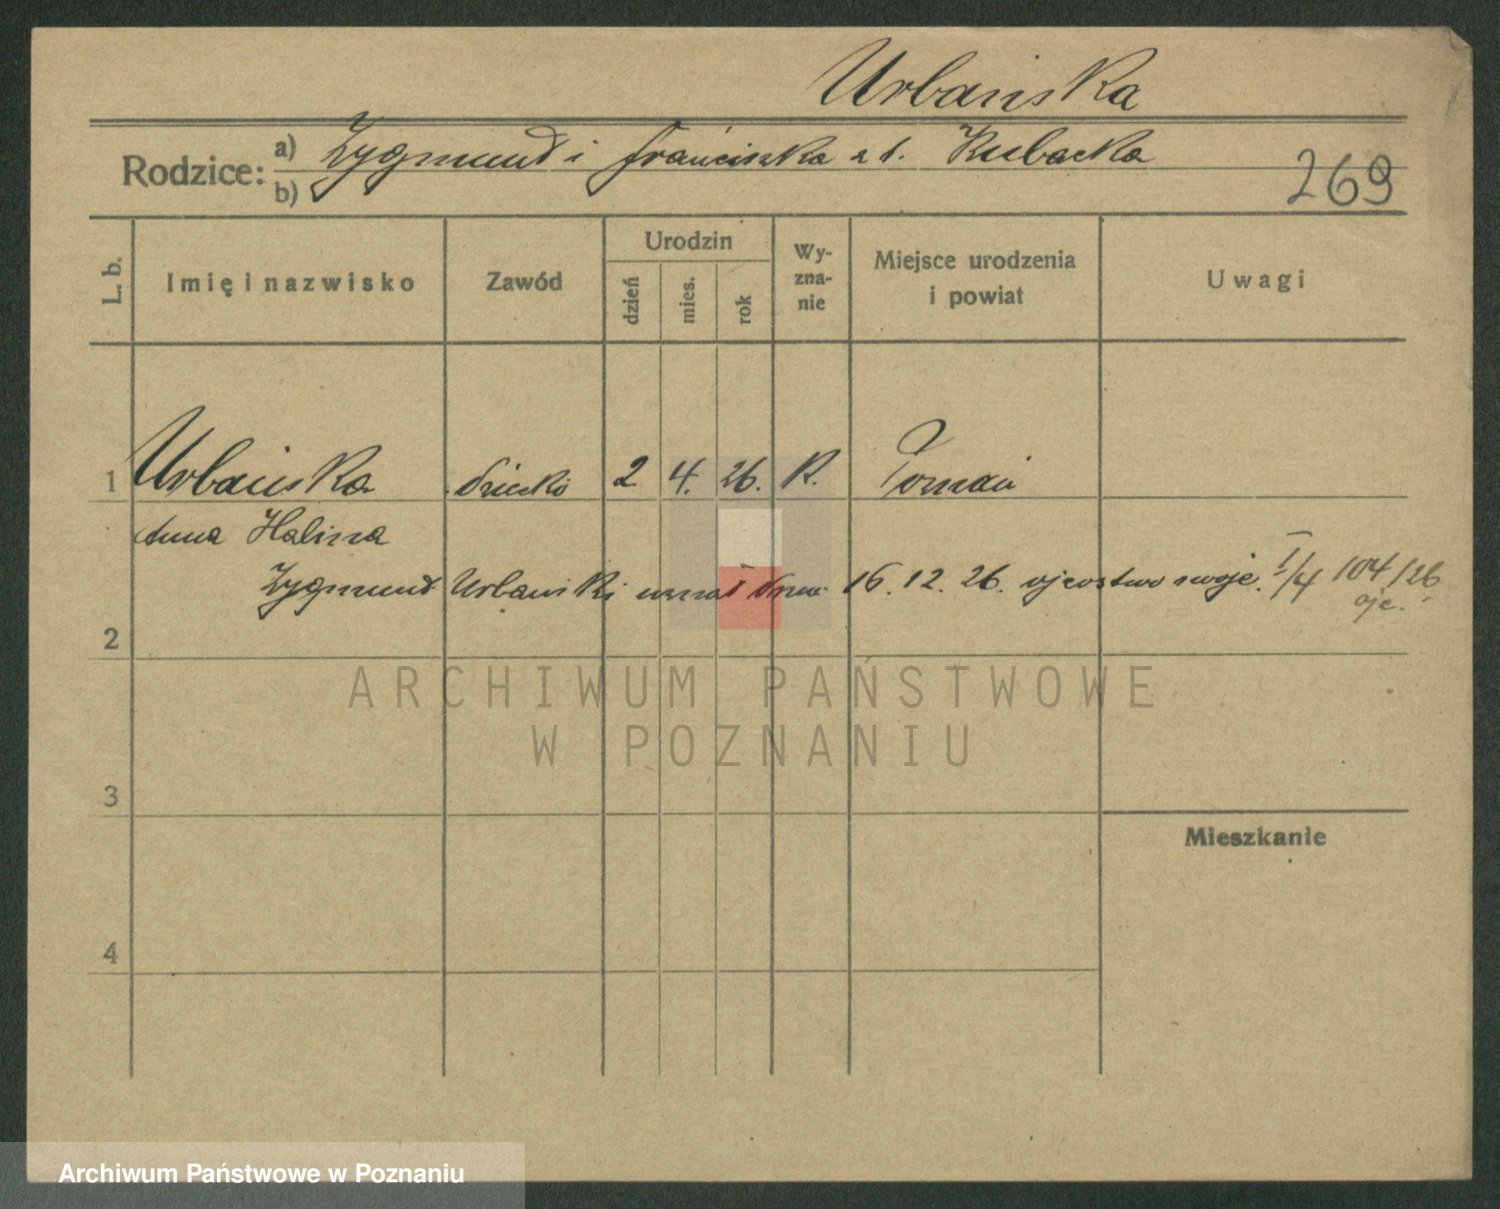 Urbańska
Rodzice: a) Zygmund i Franciszka z d. Kubacka
b)
269
L. b. Imię i nazwisko Zawód Urodzin dzień mies. rok Wy-zna-nie Miejsce urodzenia i powiat Uwagi
1 Urbańska dziecko 2. 4. 26. K. Poznań
Anna Halina
Zygmund Urbański uznał dnia 16. 12. 26. ojcostwo swoje. I/4 104/26
ojc.
2
ARCHIWUM PAŃSTWOWE
W POZNANIU
3
Mieszkanie
4
Archiwum Państwowe w Poznaniu